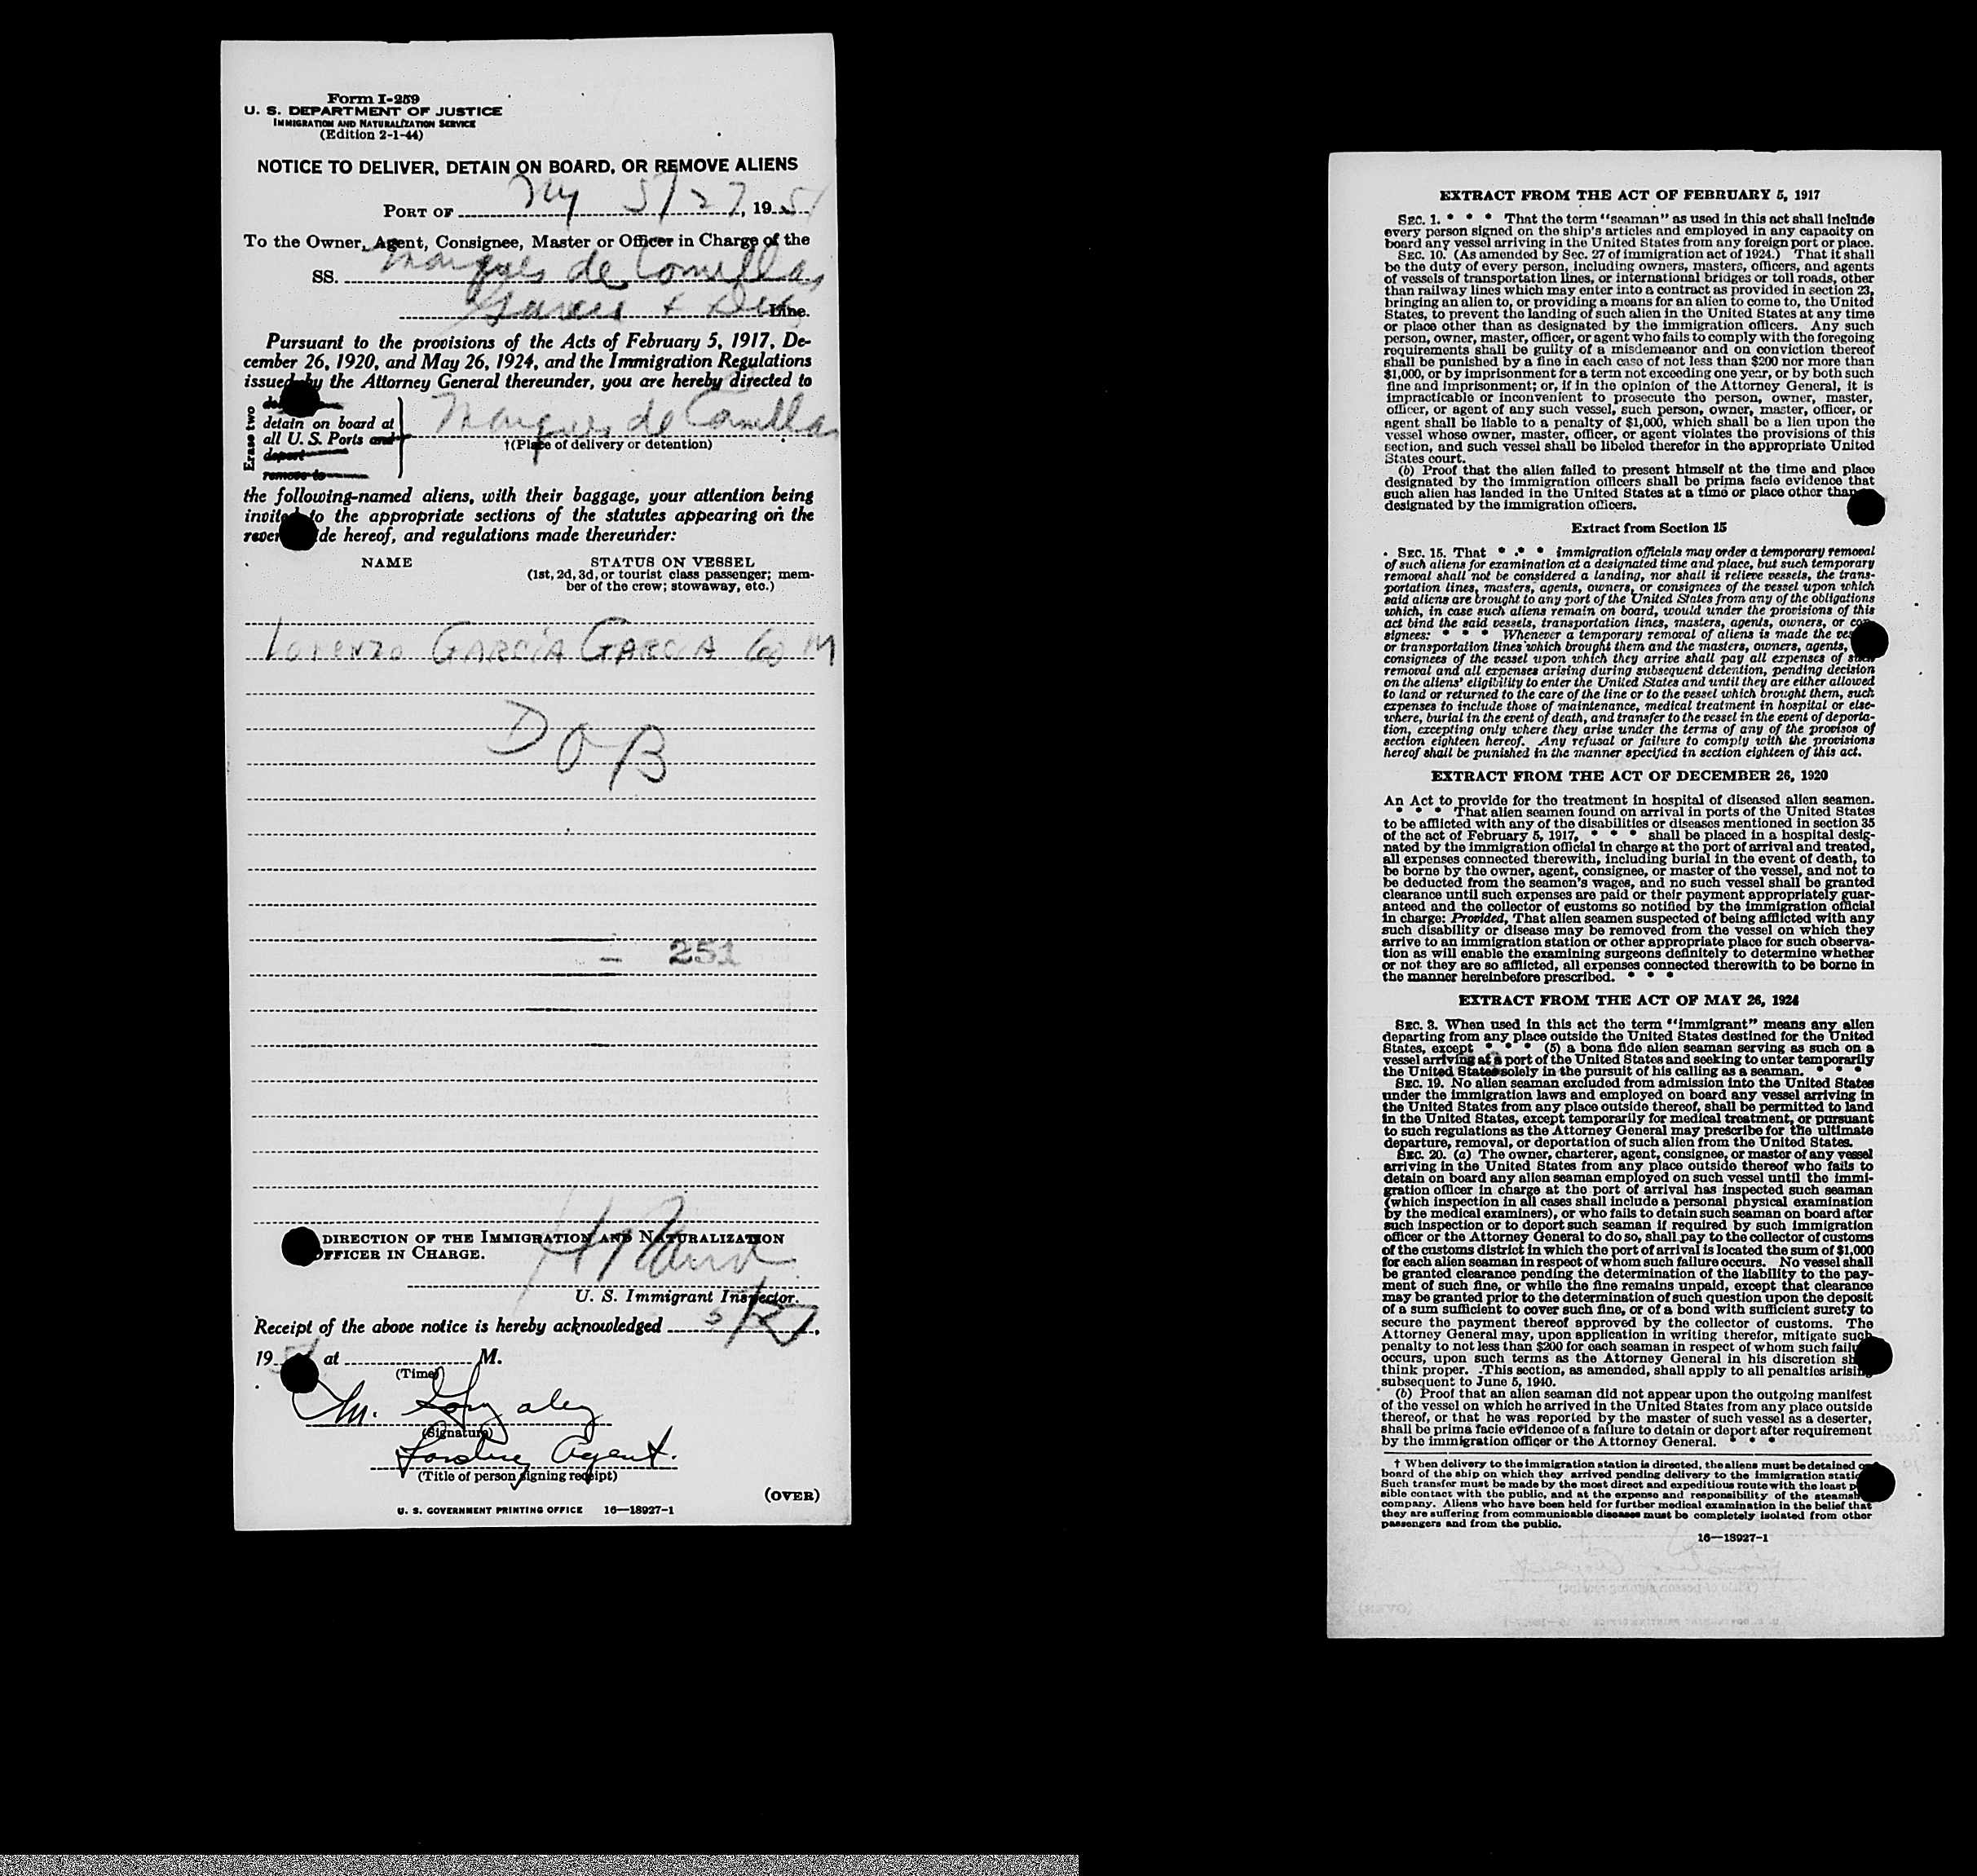 Form I-259
U. S. DEPARTMENT OF JUSTICE
IMMIGRATION AND NATURALIZATION SERVICE
(Edition 2-1-44)
NOTICE TO DELIVER, DETAIN ON BOARD, OR REMOVE ALIENS
PORT OF NY 5/27, 1951
To the Owner, Agent, Consignee, Master or Officer in Charge of the
SS. Marques de Comillas
Garcia & Diaz Line.
Pursuant to the provisions of the Acts of February 5, 1917, De-
cember 26, 1920, and May 26, 1924, and the Immigration Regulations
issued by the Attorney General thereunder, you are hereby directed to
Erase two
detain on board at
all U. S. Ports and
deport
remove to
Marques de Comillas
†(Place of delivery or detention)
the following-named aliens, with their baggage, your attention being
invited to the appropriate sections of the statutes appearing on the
rever de hereof, and regulations made thereunder:
NAME STATUS ON VESSEL
(1st, 2d, 3d, or tourist class passenger; mem-
ber of the crew; stowaway, etc.)
Lorenzo GARCIA GARCIA 60 M
DOB
- 251
DIRECTION OF THE IMMIGRATION AND NATURALIZATION
OFFICER IN CHARGE.
U. S. Immigrant Inspector.
Receipt of the above notice is hereby acknowledged 5/27,
195 at M.
(Time)
M. Gonzalez
(Signature)
Landing Agent.
(Title of person signing receipt)
(OVER)
U. S. GOVERNMENT PRINTING OFFICE 16—18927-1
EXTRACT FROM THE ACT OF FEBRUARY 5, 1917
SEC. 1. * * * That the term "seaman" as used in this act shall include
every person signed on the ship's articles and employed in any capacity on
board any vessel arriving in the United States from any foreign port or place.
SEC. 10. (As amended by Sec. 27 of immigration act of 1924.) That it shall
be the duty of every person, including owners, masters, officers, and agents
of vessels of transportation lines, or international bridges or toll roads, other
than railway lines which may enter into a contract as provided in section 23,
bringing an alien to, or providing a means for an alien to come to, the United
States, to prevent the landing of such alien in the United States at any time
or place other than as designated by the immigration officers. Any such
person, owner, master, officer, or agent who fails to comply with the foregoing
requirements shall be guilty of a misdemeanor and on conviction thereof
shall be punished by a fine in each case of not less than $200 nor more than
$1,000, or by imprisonment for a term not exceeding one year, or by both such
fine and imprisonment; or, if in the opinion of the Attorney General, it is
impracticable or inconvenient to prosecute the person, owner, master,
officer, or agent of any such vessel, such person, owner, master, officer, or
agent shall be liable to a penalty of $1,000, which shall be a lien upon the
vessel whose owner, master, officer, or agent violates the provisions of this
section, and such vessel shall be libeled therefor in the appropriate United
States court.
(b) Proof that the alien failed to present himself at the time and place
designated by the immigration officers shall be prima facie evidence that
such alien has landed in the United States at a time or place other than
designated by the immigration officers.
Extract from Section 15
SEC. 15. That * * * immigration officials may order a temporary removal
of such aliens for examination at a designated time and place, but such temporary
removal shall not be considered a landing, nor shall it relieve vessels, the trans-
portation lines, masters, agents, owners, or consignees of the vessel upon which
said aliens are brought to any port of the United States from any of the obligations
which, in case such aliens remain on board, would under the provisions of this
act bind the said vessels, transportation lines, masters, agents, owners, or con-
signees: * * * Whenever a temporary removal of aliens is made the ves
or transportation lines which brought them and the masters, owners, agents,
consignees of the vessel upon which they arrive shall pay all expenses of such
removal and all expenses arising during subsequent detention, pending decision
on the aliens' eligibility to enter the United States and until they are either allowed
to land or returned to the care of the line or to the vessel which brought them, such
expenses to include those of maintenance, medical treatment in hospital or else-
where, burial in the event of death, and transfer to the vessel in the event of deporta-
tion, excepting only where they arise under the terms of any of the provisos of
section eighteen hereof. Any refusal or failure to comply with the provisions
hereof shall be punished in the manner specified in section eighteen of this act.
EXTRACT FROM THE ACT OF DECEMBER 26, 1920
An Act to provide for the treatment in hospital of diseased alien seamen.
* * * That alien seamen found on arrival in ports of the United States
to be afflicted with any of the disabilities or diseases mentioned in section 35
of the act of February 5, 1917, * * * shall be placed in a hospital desig-
nated by the immigration official in charge at the port of arrival and treated,
all expenses connected therewith, including burial in the event of death, to
be borne by the owner, agent, consignee, or master of the vessel, and not to
be deducted from the seamen's wages, and no such vessel shall be granted
clearance until such expenses are paid or their payment appropriately guar-
anteed and the collector of customs so notified by the immigration official
in charge: Provided, That alien seamen suspected of being afflicted with any
such disability or disease may be removed from the vessel on which they
arrive to an immigration station or other appropriate place for such observa-
tion as will enable the examining surgeons definitely to determine whether
or not they are so afflicted, all expenses connected therewith to be borne in
the manner hereinbefore prescribed. * * *
EXTRACT FROM THE ACT OF MAY 26, 1924
SEC. 3. When used in this act the term "immigrant" means any alien
departing from any place outside the United States destined for the United
States, except * * * (5) a bona fide alien seaman serving as such on a
vessel arriving at a port of the United States and seeking to enter temporarily
the United States solely in the pursuit of his calling as a seaman. * * *
SEC. 19. No alien seaman excluded from admission into the United States
under the immigration laws and employed on board any vessel arriving in
the United States from any place outside thereof, shall be permitted to land
in the United States, except temporarily for medical treatment, or pursuant
to such regulations as the Attorney General may prescribe for the ultimate
departure, removal, or deportation of such alien from the United States.
SEC. 20. (a) The owner, charterer, agent, consignee, or master of any vessel
arriving in the United States from any place outside thereof who fails to
detain on board any alien seaman employed on such vessel until the immi-
gration officer in charge at the port of arrival has inspected such seaman
(which inspection in all cases shall include a personal physical examination
by the medical examiners), or who fails to detain such seaman on board after
such inspection or to deport such seaman if required by such immigration
officer or the Attorney General to do so, shall pay to the collector of customs
of the customs district in which the port of arrival is located the sum of $1,000
for each alien seaman in respect of whom such failure occurs. No vessel shall
be granted clearance pending the determination of the liability to the pay-
ment of such fine, or while the fine remains unpaid, except that clearance
may be granted prior to the determination of such question upon the deposit
of a sum sufficient to cover such fine, or of a bond with sufficient surety to
secure the payment thereof approved by the collector of customs. The
Attorney General may, upon application in writing therefor, mitigate such
penalty to not less than $200 for each seaman in respect of whom such failu
occurs, upon such terms as the Attorney General in his discretion sh
think proper. This section, as amended, shall apply to all penalties arising
subsequent to June 5, 1940.
(b) Proof that an alien seaman did not appear upon the outgoing manifest
of the vessel on which he arrived in the United States from any place outside
thereof, or that he was reported by the master of such vessel as a deserter,
shall be prima facie evidence of a failure to detain or deport after requirement
by the immigration officer or the Attorney General. * * *
† When delivery to the immigration station is directed, the aliens must be detained on
board of the ship on which they arrived pending delivery to the immigration static
Such transfer must be made by the most direct and expeditious route with the least p
sible contact with the public, and at the expense and responsibility of the steamsh
company. Aliens who have been held for further medical examination in the belief that
they are suffering from communicable diseases must be completely isolated from other
passengers and from the public.
16—18927-1